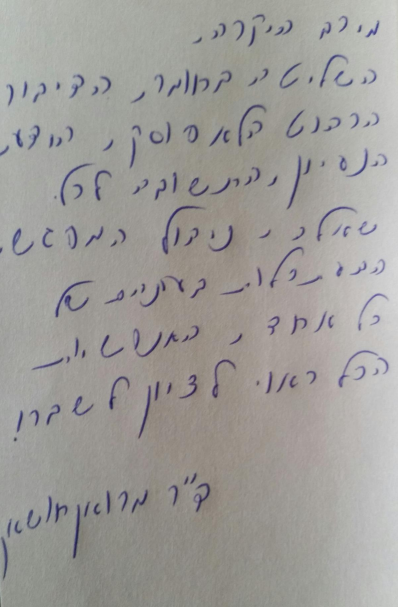 מירב היקרה,
השליטה בחומר, הדיבור
הרהוט הלא פוסק, הידע,
הנסיון, התשובה לכל
שאלה, ניהול המפגש,
הסתכלות בעיניים של
כל אחד, האנושיות
הכל ראוי לציון לשבח!
ד"ר מרואן חושאן